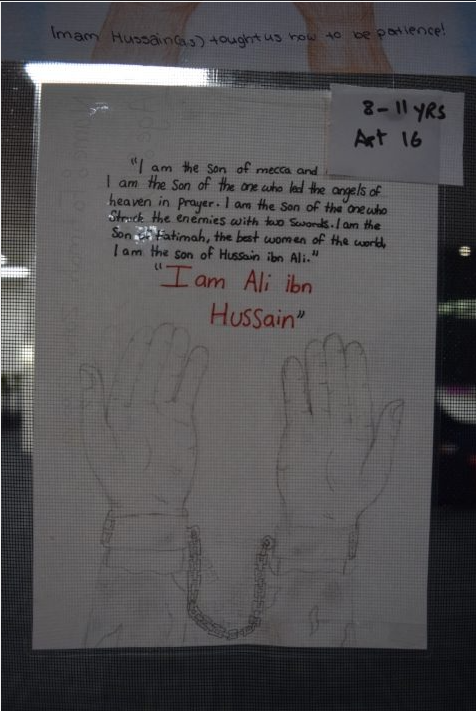 Imam Hussain(as) taught us how to be patience!
8-11 YRS
Art 16
"I am the son of mecca and
I am the son of the one who led the angels of
heaven in prayer. I am the son of the one who
struck the enemies with two swords. I am the
Son of Fatimah, the best women of the world,
I am the son of Hussain ibn Ali."
"I am Ali ibn
Hussain"